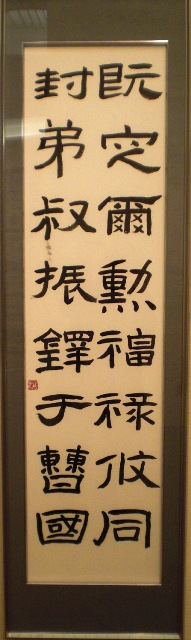 既定爾勳福祿攸同
封弟叔振鐸于曹國